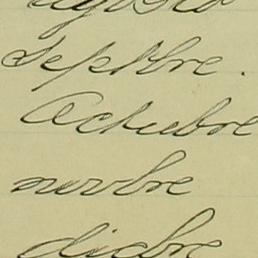 Agosto
Septbre.
Octubre
novbre
dicbre